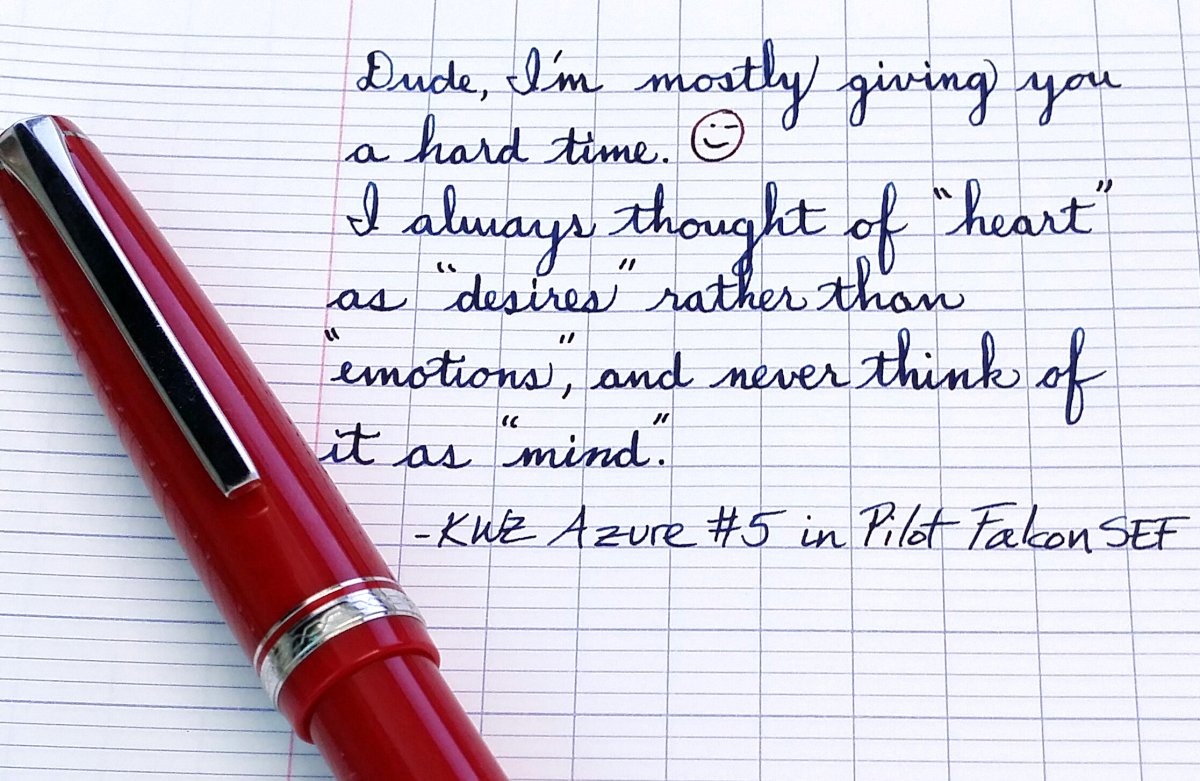 Dude, I'm mostly giving you
a hard time. 😉
I always thought of "heart"
as "desires" rather than
"emotions", and never think of
it as "mind".
-KWZ Azure #5 in Pilot Falcon SEF